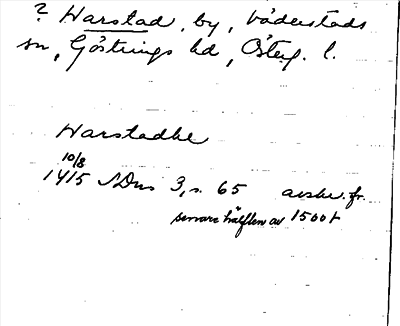 ? Harstad, by, Väderstads
sn, Göstrings hd, Österg. l.
Harstadhe
10/8
1415 SDns 3, s. 65 avskr. fr.
senare hälften av 1500t